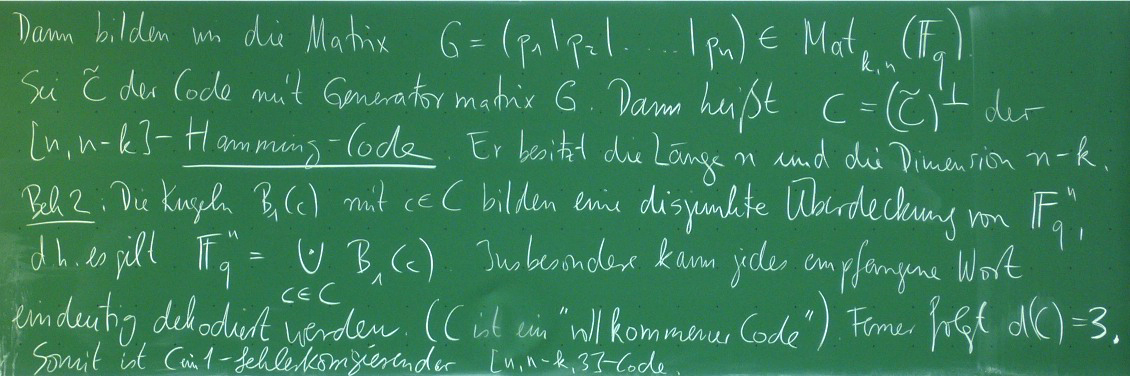 Dann bilden wir die Matrix G = (p₁|p₂|......|pₙ) ∈ Mat_{k,n} (𝔽_q)
Sei C̃ der Code mit Generatormatrix G. Dann heißt C = (C̃)^⊥ der
[n, n-k]-Hamming-Code. Er besitzt die Länge n und die Dimension n-k.
Beh 2: Die Kugeln B₁(c) mit c∈C bilden eine disjunkte Überdeckung von 𝔽_q^n,
d.h. es gilt 𝔽_q^n = ⨃_{c∈C} B₁(c) Insbesondere kann jedes empfangene Wort
eindeutig dekodiert werden. (C ist ein "vollkommener Code") Ferner folgt d(C)=3.
Somit ist C ein 1-fehlerkorrigierender [n,n-k,3]-Code.